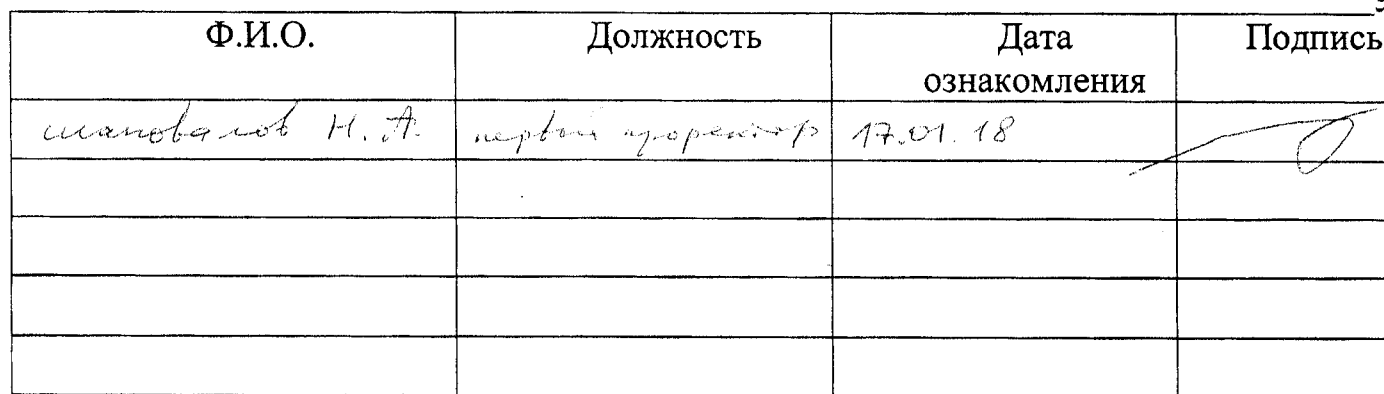 Ф.И.О. Должность Дата ознакомления Подпись
Шаповалов Н. А. первый проректор 17.01.18